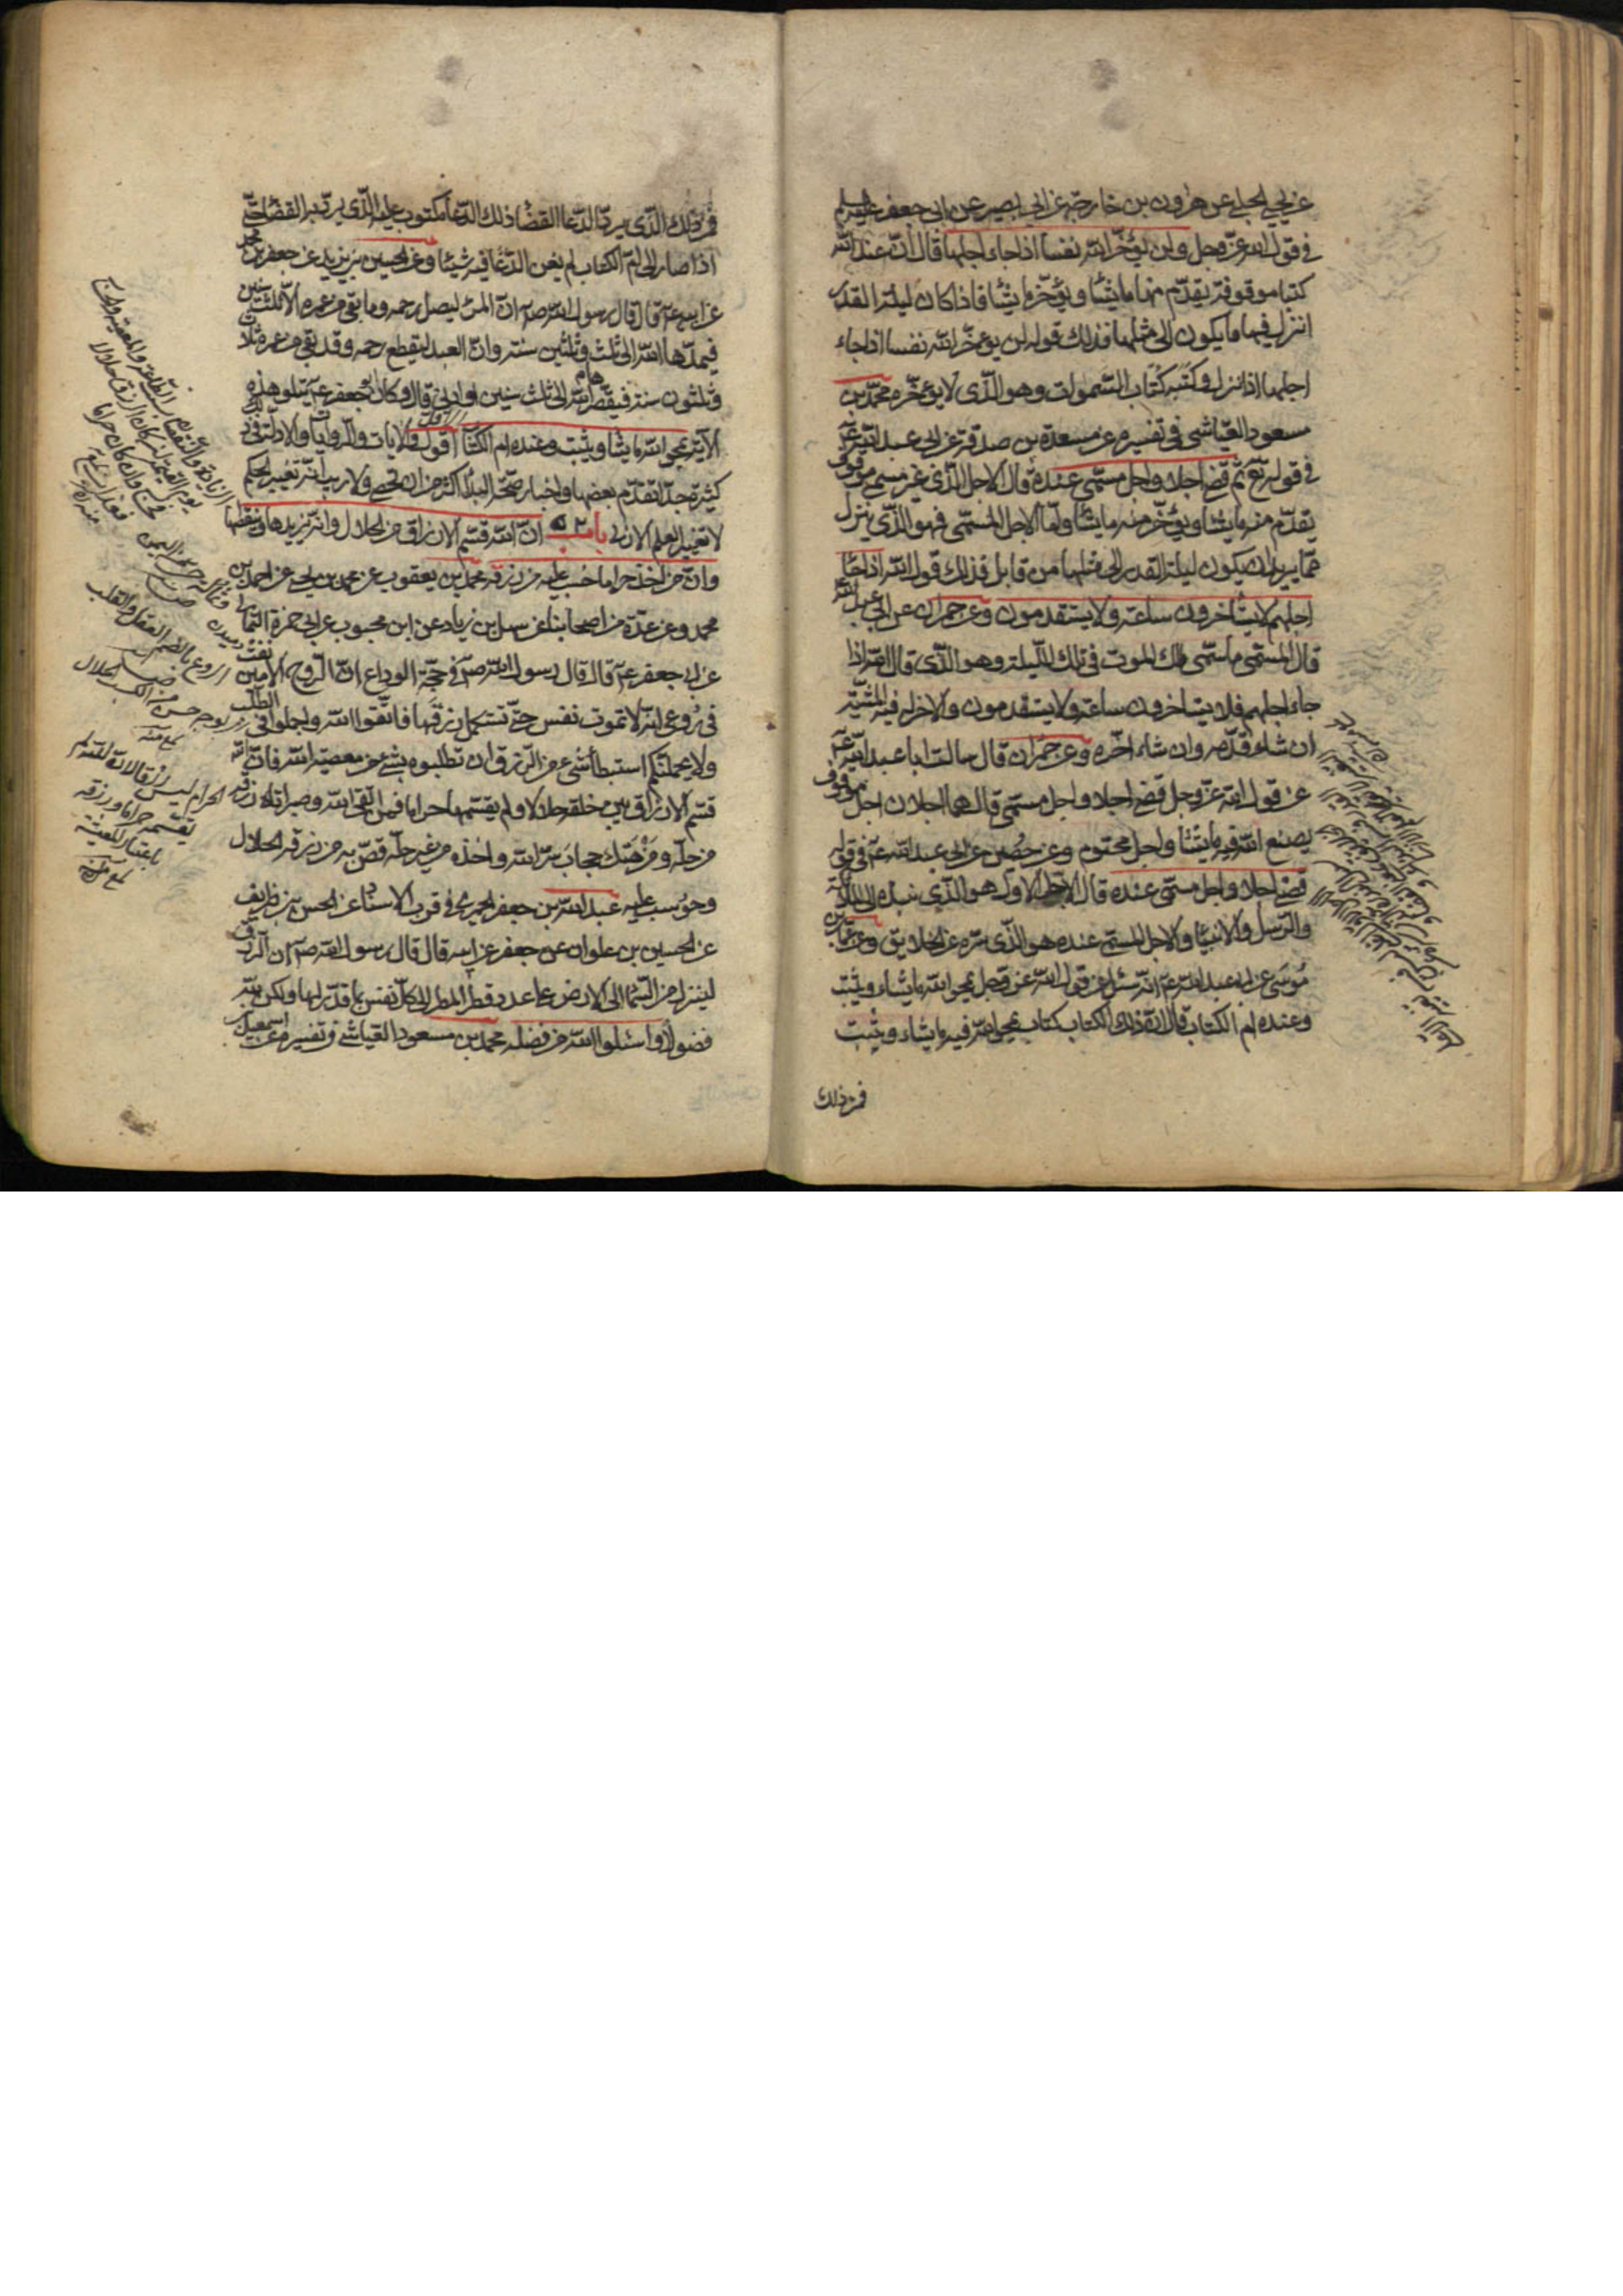 عن يحيى الحلبي عن هرون بن خارجة عن ابي بصير عن ابي جعفر عليه السلم
في قول الله عز وجل ولن يؤخر الله نفسا اذا جاء اجلها قال ان عند الله
كتبا موقوفة يقدم منها ما يشا ويؤخر ما يشا فاذا كان ليلة القدر
انزل فيها ما يكون الى مثلها فذلك قوله لن يؤخر الله نفسا اذا جاء
اجلها اذا نزل وكتبه كتاب السموات وهو الذي لا يؤخره محمد بن
مسعود العياشي في تفسيره عن مسعدة بن صدقة عن ابي عبد الله ع
في قوله تع ثم قضى اجلا واجل مسمى عنده قال الاجل الذي غير مسمى موقوف
يقدم منه ما يشا ويؤخر منه ما يشا واما الاجل المسمى فهو الذي ينزل
مما يريد ان يكون ليلة القدر الى مثلها من قابل فذلك قول الله اذا جا
اجلهم لا يستأخرون ساعة ولا يستقدمون وعن حمران عن ابي عبد الله
قال المسمى ما سمى ملك الموت في تلك الليلة وهو الذي قال الله اذا
جاء اجلهم فلا يستاخرون ساعة ولا يستقدمون والاخر له فيه المشية
ان شاء قدمه وان شاء اخره وعن حمران قال سالت ابا عبد الله ع
عن قول الله عز وجل قضى اجلا واجل مسمى قال هما اجلان اجل موقوف
يصنع الله فيه ما يشا واجل محتوم وعن حصين عن ابي عبد الله ع في قوله
قضى اجلا واجل مسمى عنده قال الاجل الاول هو الذي نبذه الى الملائكة
والرسل والانبيا والاجل المسمى عنده هو الذي ستره عن الخلايق وعن عمار بن
موسى عن ابي عبد الله ع انه سئل عن قول الله عز وجل يمحو الله ما يشاء ويثبت
وعنده ام الكتاب قال ان ذلك الكتاب كتاب يمحو الله فيه ما يشاء ويثبت
فمن ذلك
فمن ذلك الذي يرد الدعا القضا وذلك الدعا مكتوب عليه الذي يرد به القضا حتى
اذا صار الى ام الكتاب لم يغن الدعا فيه شيئا وعن الحسين بن يزيد عن جعفر بن محمد
عن ابيه ع قال قال رسول الله ص ان المرء ليصل رحمه وما بقى من عمره الا ثلث سنين
فيمدها الله الى ثلث وثلثين سنة وان العبد ليقطع رحمه وقد بقى من عمره ثلاث
وثلثون سنة فيقصرها الله الى ثلث سنين او ادنى قال وكان جعفر ع يتلو هذه
الاية يمحو الله ما يشا ويثبت وعنده ام الكتاب اقول والايات والروايات والادلة في ذلك
كثيرة جدا تقدم بعضها واخبار صحة البدا اكثر من ان تحصى ولا ريب انه تغيير الحكم
لا تغيير العلم الازلي باب ٥٢ ان الله قسم الارزاق من الحلال وانه يزيدها وينقصها
وان من اخذ حراما حسب عليه من رزقه محمد بن يعقوب عن محمد بن يحيى عن احمد بن
محمد وعن عدة من اصحابنا عن سهل بن زياد عن ابن محبوب عن ابي حمزة الثمالي
عن ابي جعفر ع قال قال رسول الله ص في حجة الوداع ان الروح الامين نفث
في روعي انه لا تموت نفس حتى تستكمل رزقها فاتقوا الله واجملوا في الطلب
ولا يحملنكم استبطاء شيء من الرزق ان تطلبوه بشيء من معصية الله فان الله
قسم الارزاق بين خلقه حلالا ولم يقسمها حراما فمن اتقى الله وصبر اتاه رزقه
من حله ومن هتك حجاب ستر الله واخذه من غير حله قص به من رزقه الحلال
وحوسب عليه عبد الله بن جعفر الحميري في قرب الاسناد عن الحسن بن ظريف
عن الحسين بن علوان عن جعفر عن ابيه قال قال رسول الله ص ان الرزق
لينزل من السما الى الارض على عدد قطر المطر الى كل نفس بما قدر لها ولكن لله
فضول فاسئلوا الله من فضله محمد بن مسعود العياشي في تفسيره عن اسمعيل بن
الروع بالضم العقل والقلب